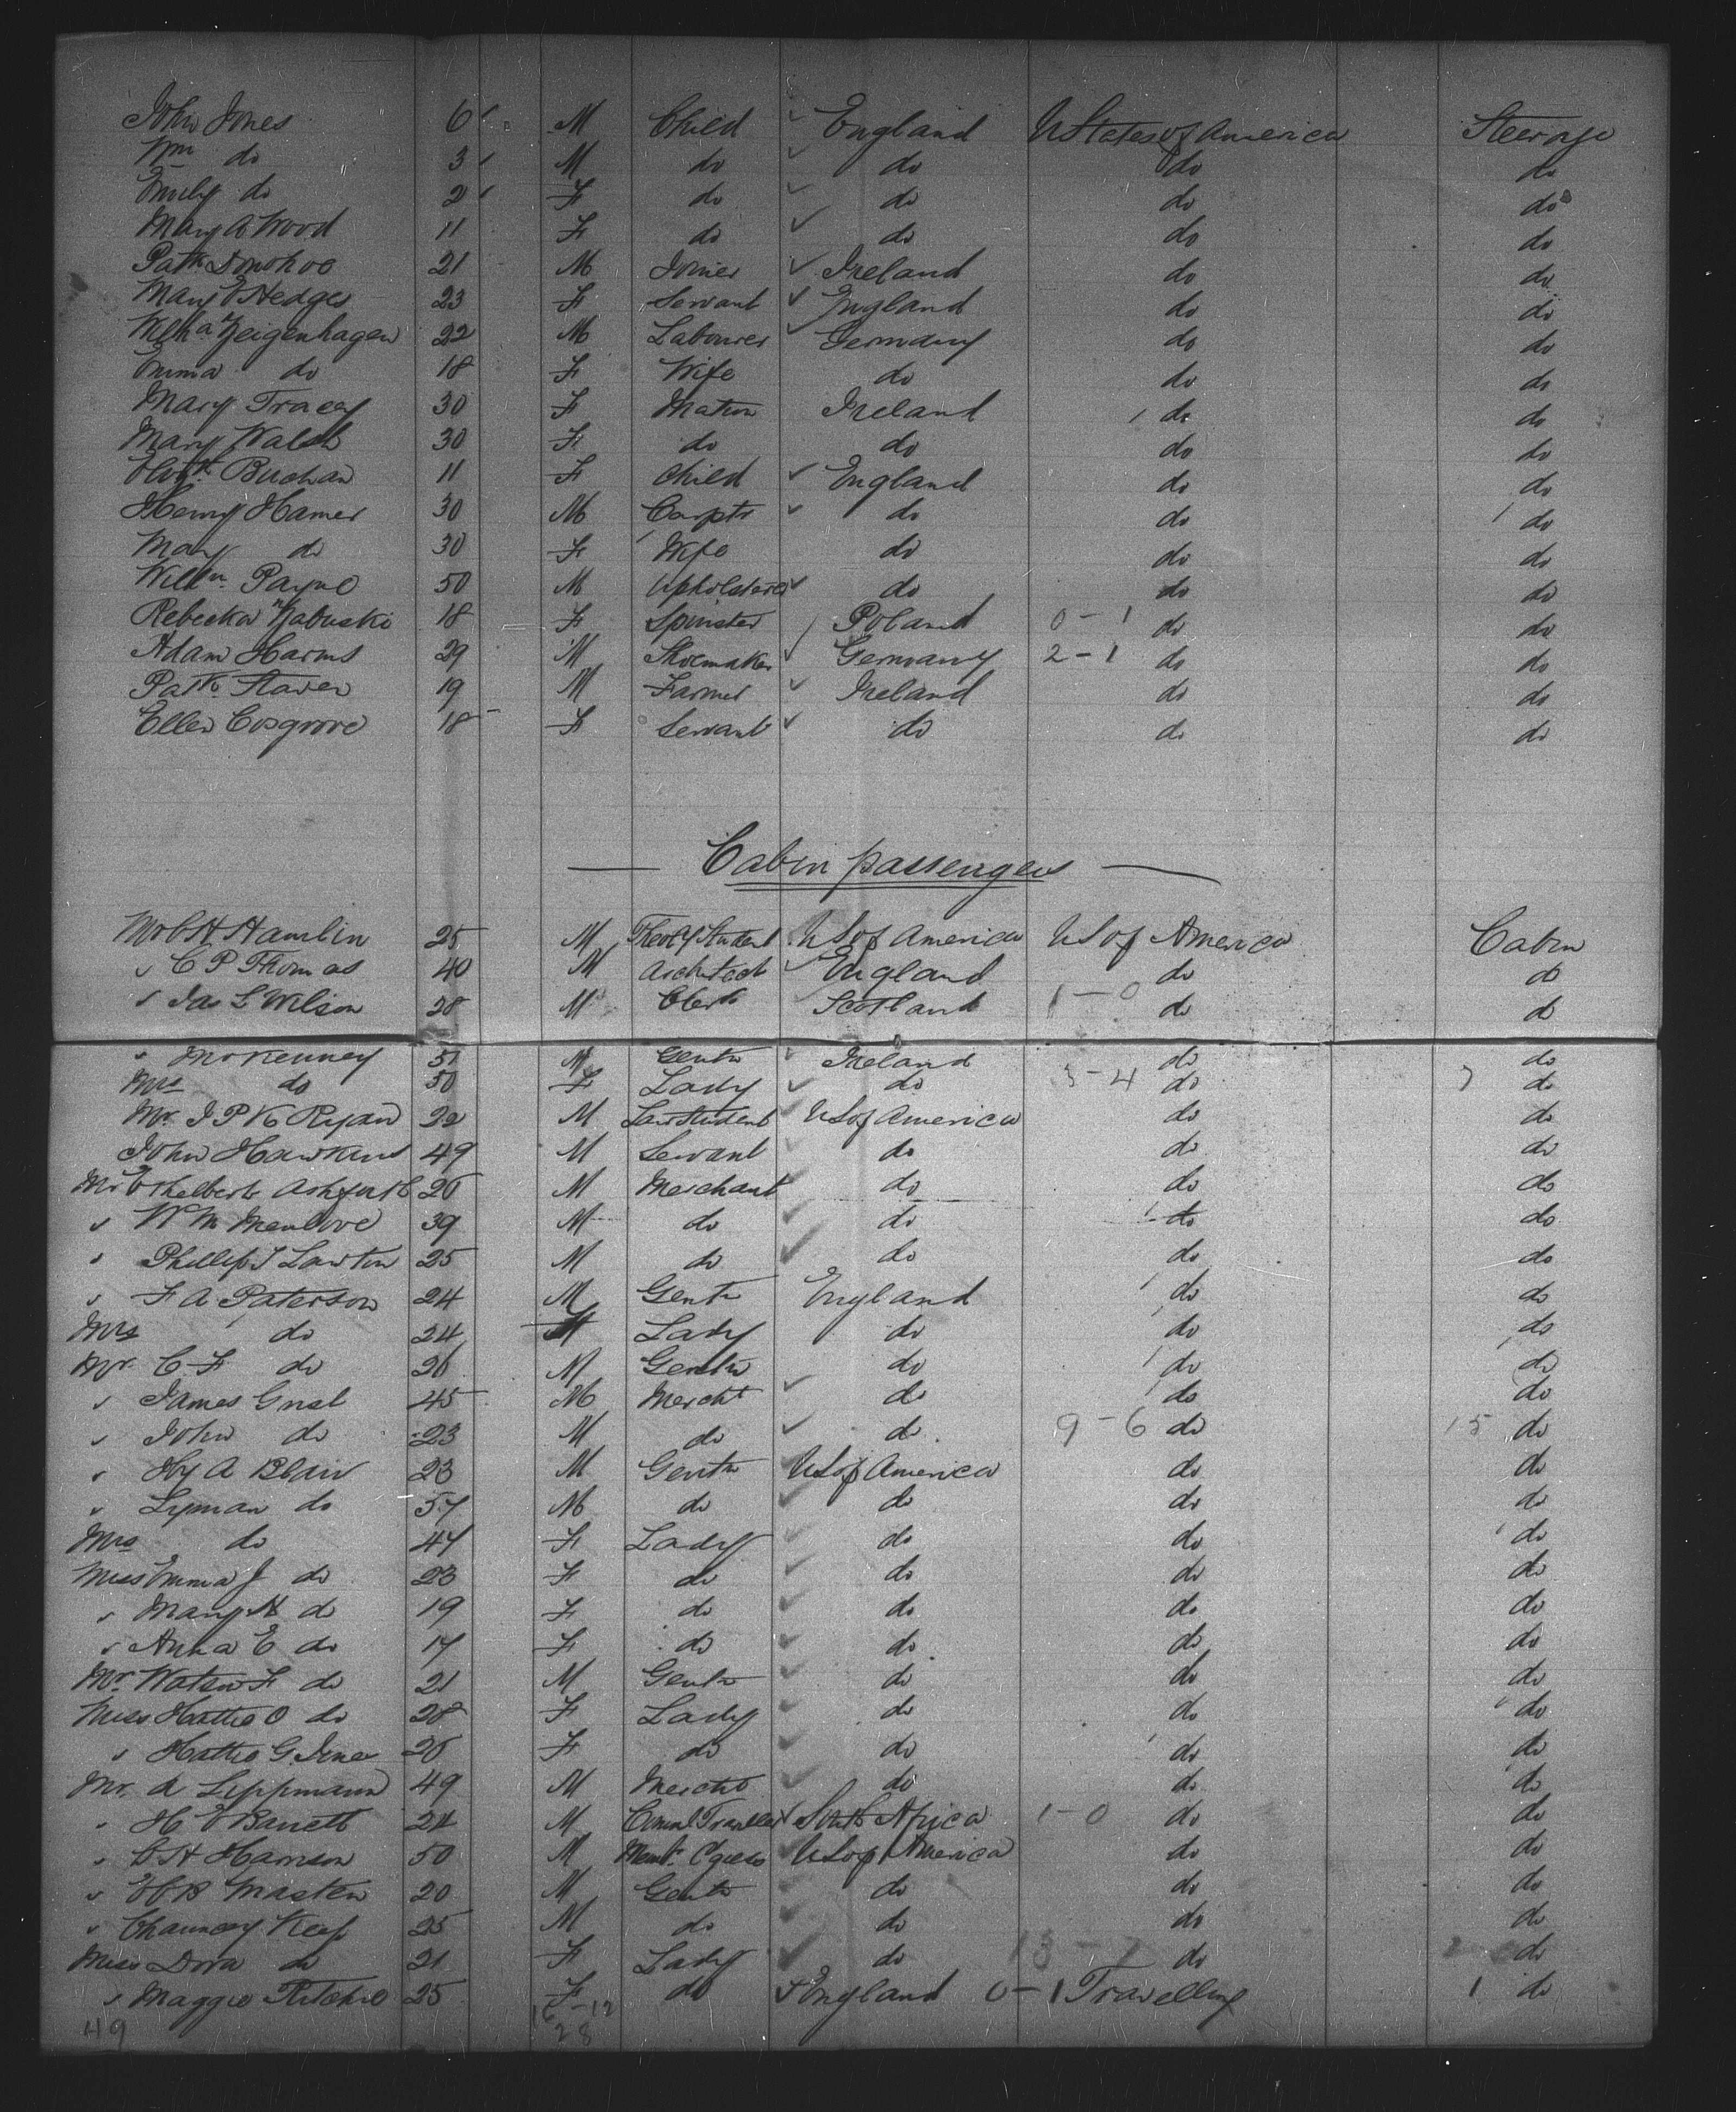 John Jones 6 M Child England U States of America Steerage
Wm do 3 M do do do do
Emily do 2 F do do do do
Mary A Wood 11 F do do do do
Patk Donohoe 21 M Joiner Ireland do do
Mary E Hedges 23 F Servant England do do
Zeigenhagen 22 M Labourer Germany do do
Emma do 18 F Wife do do do
Mary Tracey 30 F Matron Ireland do do
Mary Walsh 30 F do do do do
Buchan 11 F Child England do do
Henry Hamer 30 M Carptr do do do
Mary do 30 F Wife do do do
Willm. Payne 50 M Upholsterer do do do
Rebecka Zabuski 18 F Spinster Poland 0-1 do do
Adam Harms 29 M Shoemaker Germany 2-1 do do
Patk. 19 M Farmer Ireland do do
Ellen Cosgrove 18 F Servant do do do
Cabin passengers
Mr C H Hamlin 25 M Theoly Student US of America US of America Cabin
" C P Thomas 40 M Architect England do do
" Jas L Wilson 28 M Clerk Scotland 1-0 do do
" McKenney 51 M Gentn Ireland do do
Mrs do 50 F Lady do 3-4 do 7 do
Mr. J P K Ryan 22 M Law Student US of America do do
John Hawkins 49 M Servant do do do
Mr Ethelbert 26 M Merchant do do do
" W M Menlove 39 M do do do do
" Phillip J Lawton 25 M do do do do
" F A Paterson 24 M Gentn England do do
Mrs do 24 F Lady do do do
Mr C F do 26 M Gentn do do do
" James 45 M Mercht do do do
" John do 23 M do do 9-6 do 15 do
" Hy A Blair 23 M Gentn US of America do do
" Lyman do 57 M do do do do
Mrs do 47 F Lady do do do
Miss Emma J do 23 F do do do do
" Mary A do 19 F do do do do
" Anna E do 17 F do do do do
Mr. Watson F do 21 M Gentn do do do
Miss Hattie O do 28 F Lady do do do
" Hattie G. 26 F do do do do
Mr. A Lippmann 49 M Mercht do do do
" H E Barrett 24 M Comml Traveller South Africa 1-0 do do
" C H Harrison 50 M US of America do do
" H B Masten 20 M Gentn do do do
" Chauncey Keep 25 M do do do do
Miss Dora do 21 F Lady do 13-7 do do
" Maggie Ritchie 25 F do England 0-1 Travelling 1 do
49 16-12
28